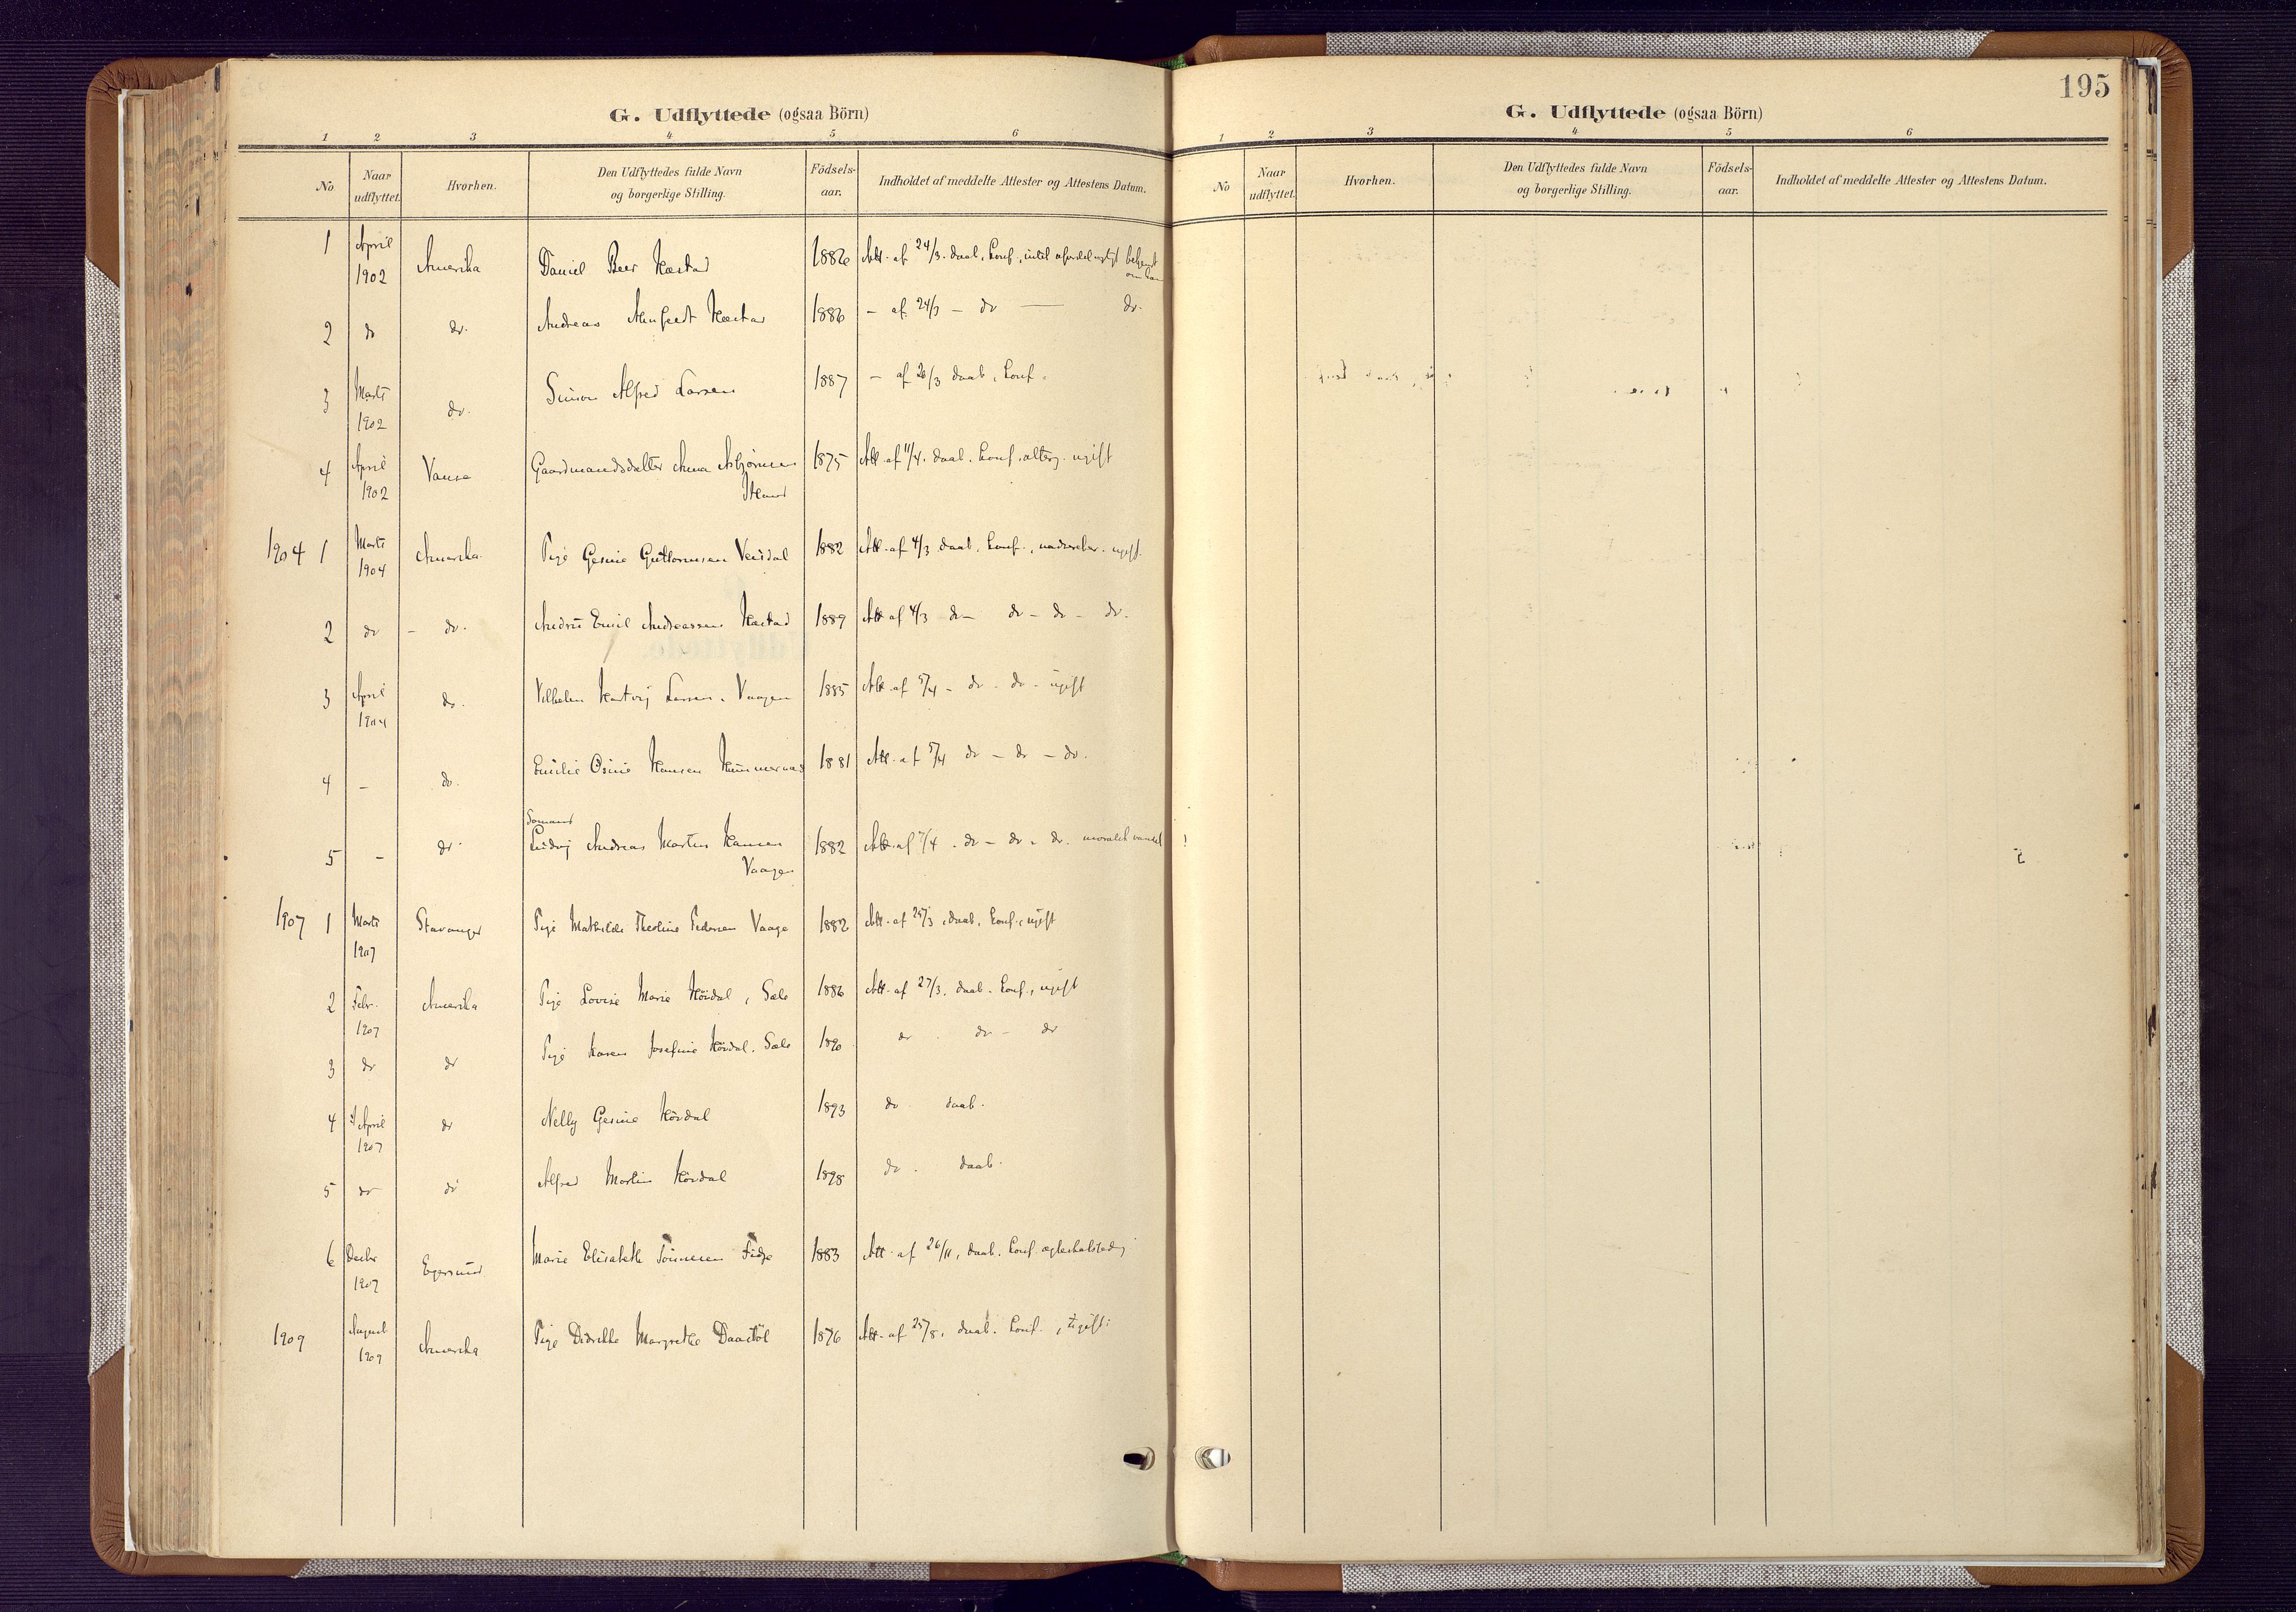 195
G. Udflyttede (ogsaa Börn)
1 2 3 4 5 6
No Naar udflyttet. Hvorhen. Den Udflyttedes fulde Navn og borgerlige Stilling. Födsels-aar. Indholdet af meddelte Attester og Attestens Datum.
1 April 1902 Amerika Daniel Beer Hæstad 1882 Att. af 24/3. daab, konf., intet ufordelagtigt bekjendt om ham
2 do do. Andreas Hæstad 1886 – af 24/3 – do — do.
3 Marts 1902 do. Simon Alfred Larsen 1887 – af 26/3 daab, konf.
4 April 1902 Vanse Gaardmandsdatter Anna Asbjörnsen 1875 Att. af 11/4. daab. konf. alterg. ugift
1904 1 Marts 1904 Amerika. Pige Gesine Guttormsen Veisdal 1882 Att. af 4/3 daab. konf., ugift.
2 do – do. Emil Andreassen Hæstad 1889 Att af 4/3 do – do – do – do.
3 April 1904 do. Vilhelm Hartvig Larsen. Vaagen 1885 Att. af 5/4 – do – do – ugift
4 – do. Emilie Osine Hansen 1881 Att. af 5/4 do – do – do.
5 – do Ludvig Andreas Martin Hansen Vaagen 1882 Att. af 7/4 – do – do – do. moralsk vandel
1907 1 Marts 1907 Stavanger Pige Mathilde Theoline Pedersen Vaage 1882 Att. af 25/3, daab, konf., ugift
2 Febr. 1907 Amerika Pige Lovise Marie Hövdal, Sæle 1886 Att. af 27/3. daab. konf., ugift
3 do do Pige Karen Josefine Hövdal. Sæle 1890 do do – do
4 April 1907 do Nelly Gesine Hövdal 1893 do daab.
5 do do Alfred Martin Hövdal 1898 do. daab.
6 Decbr 1907 Egersund Marie Elisabeth Tönnesen Fidje 1883 Att. af 26/11, daab. konf.
1909 August 1909 Amerika Pige Didrikke Margrethe Daastöl 1876 Att. af 25/8, daab. konf., ugift.
G. Udflyttede (ogsaa Börn)
1 2 3 4 5 6
No Naar udflyttet. Hvorhen. Den Udflyttedes fulde Navn og borgerlige Stilling. Födsels-aar. Indholdet af meddelte Attester og Attestens Datum.